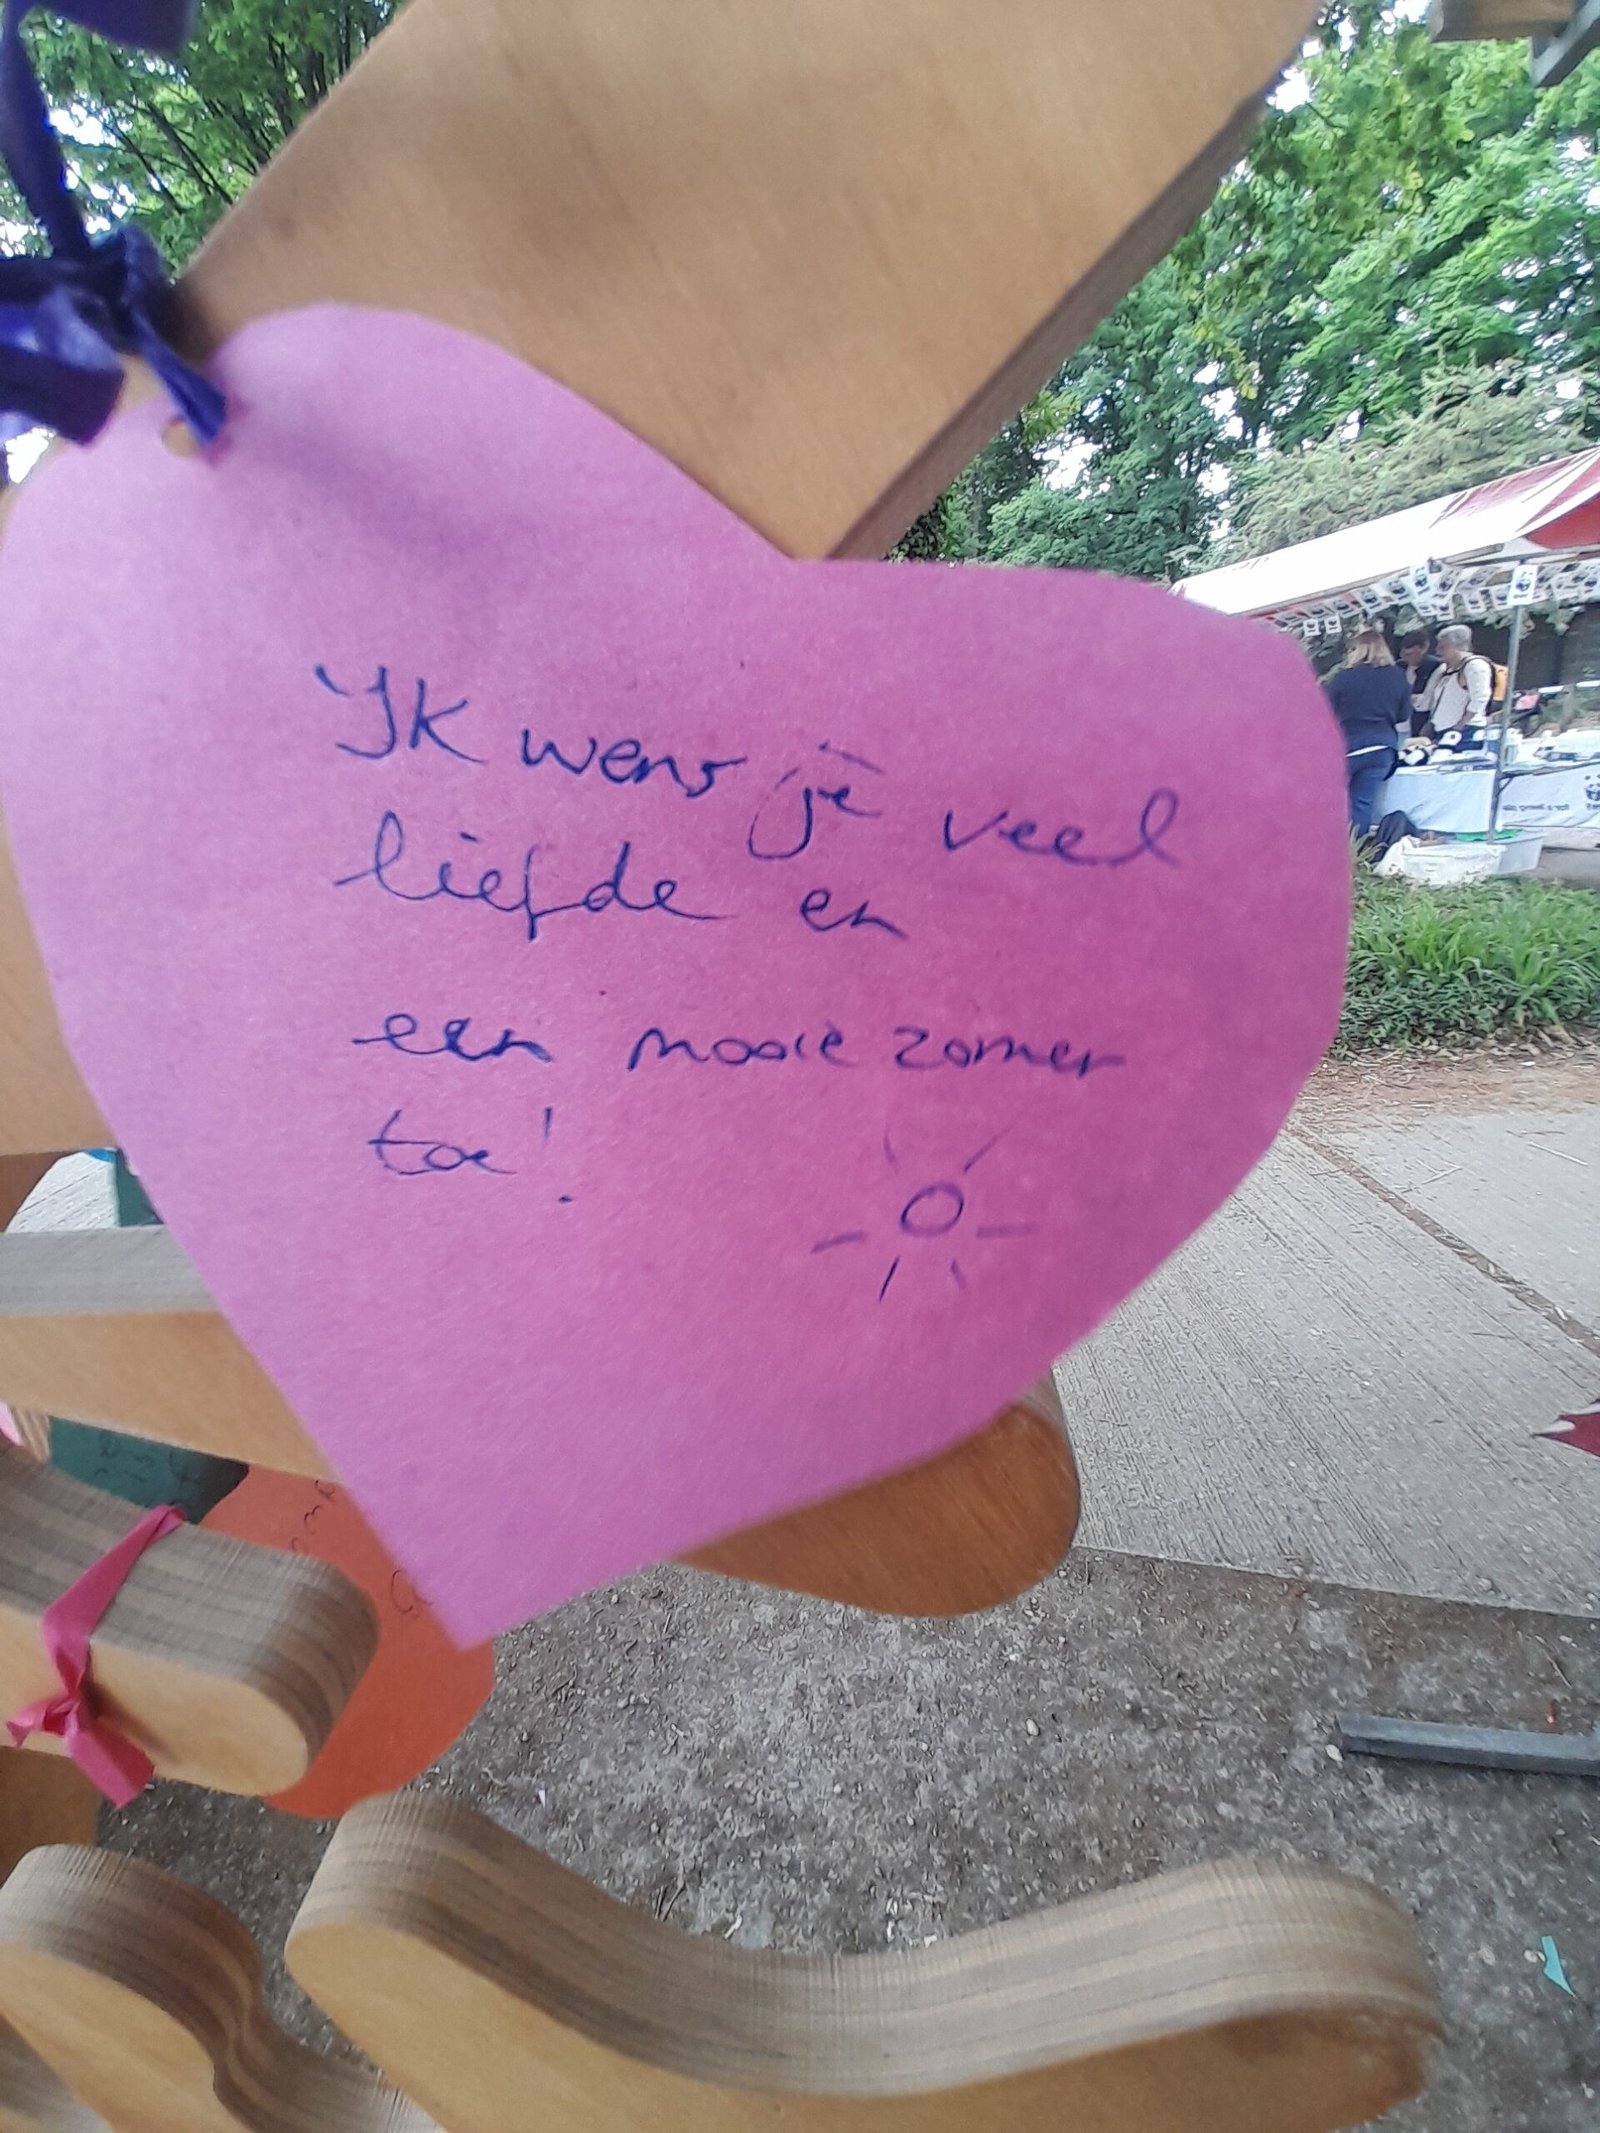 Ik wens je veel
liefde en
een mooie zomer
toe!